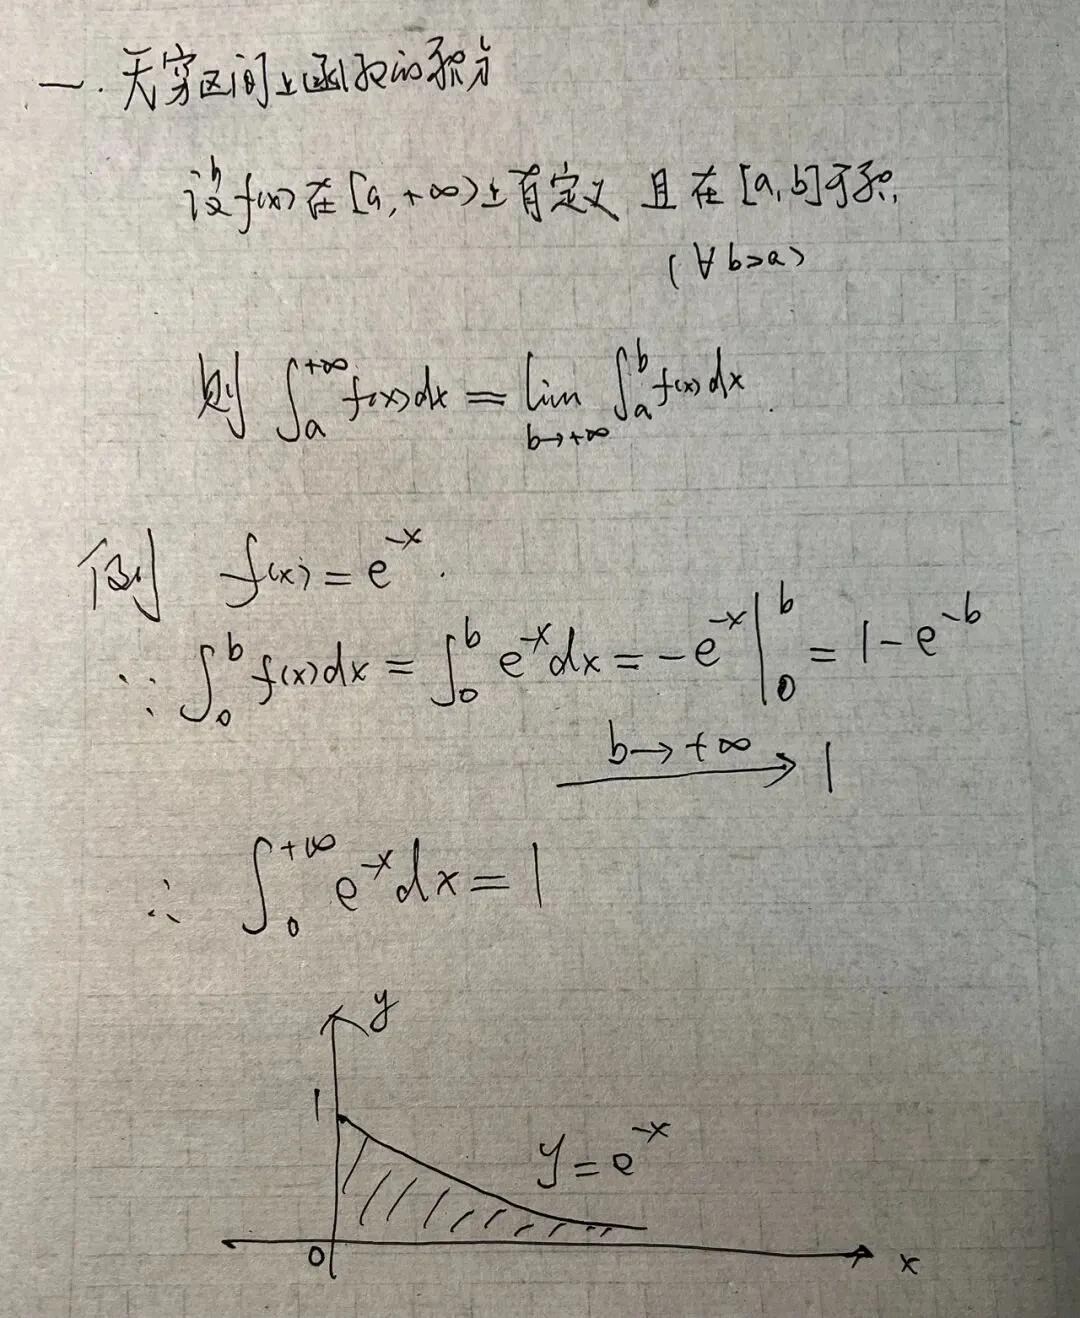 一. 无穷区间上函数的积分
设f(x)在[a,+∞)上有定义 且在[a,b]可积,
(∀b>a)
则 ∫_a^{+∞} f(x)dx = lim_{b→+∞} ∫_a^b f(x)dx.
例 f(x)=e^{-x}.
∵ ∫_0^b f(x)dx = ∫_0^b e^{-x}dx = -e^{-x}|_0^b = 1-e^{-b}
b→+∞ → 1
∴ ∫_0^{+∞} e^{-x}dx = 1
y
1
y=e^{-x}
0
x